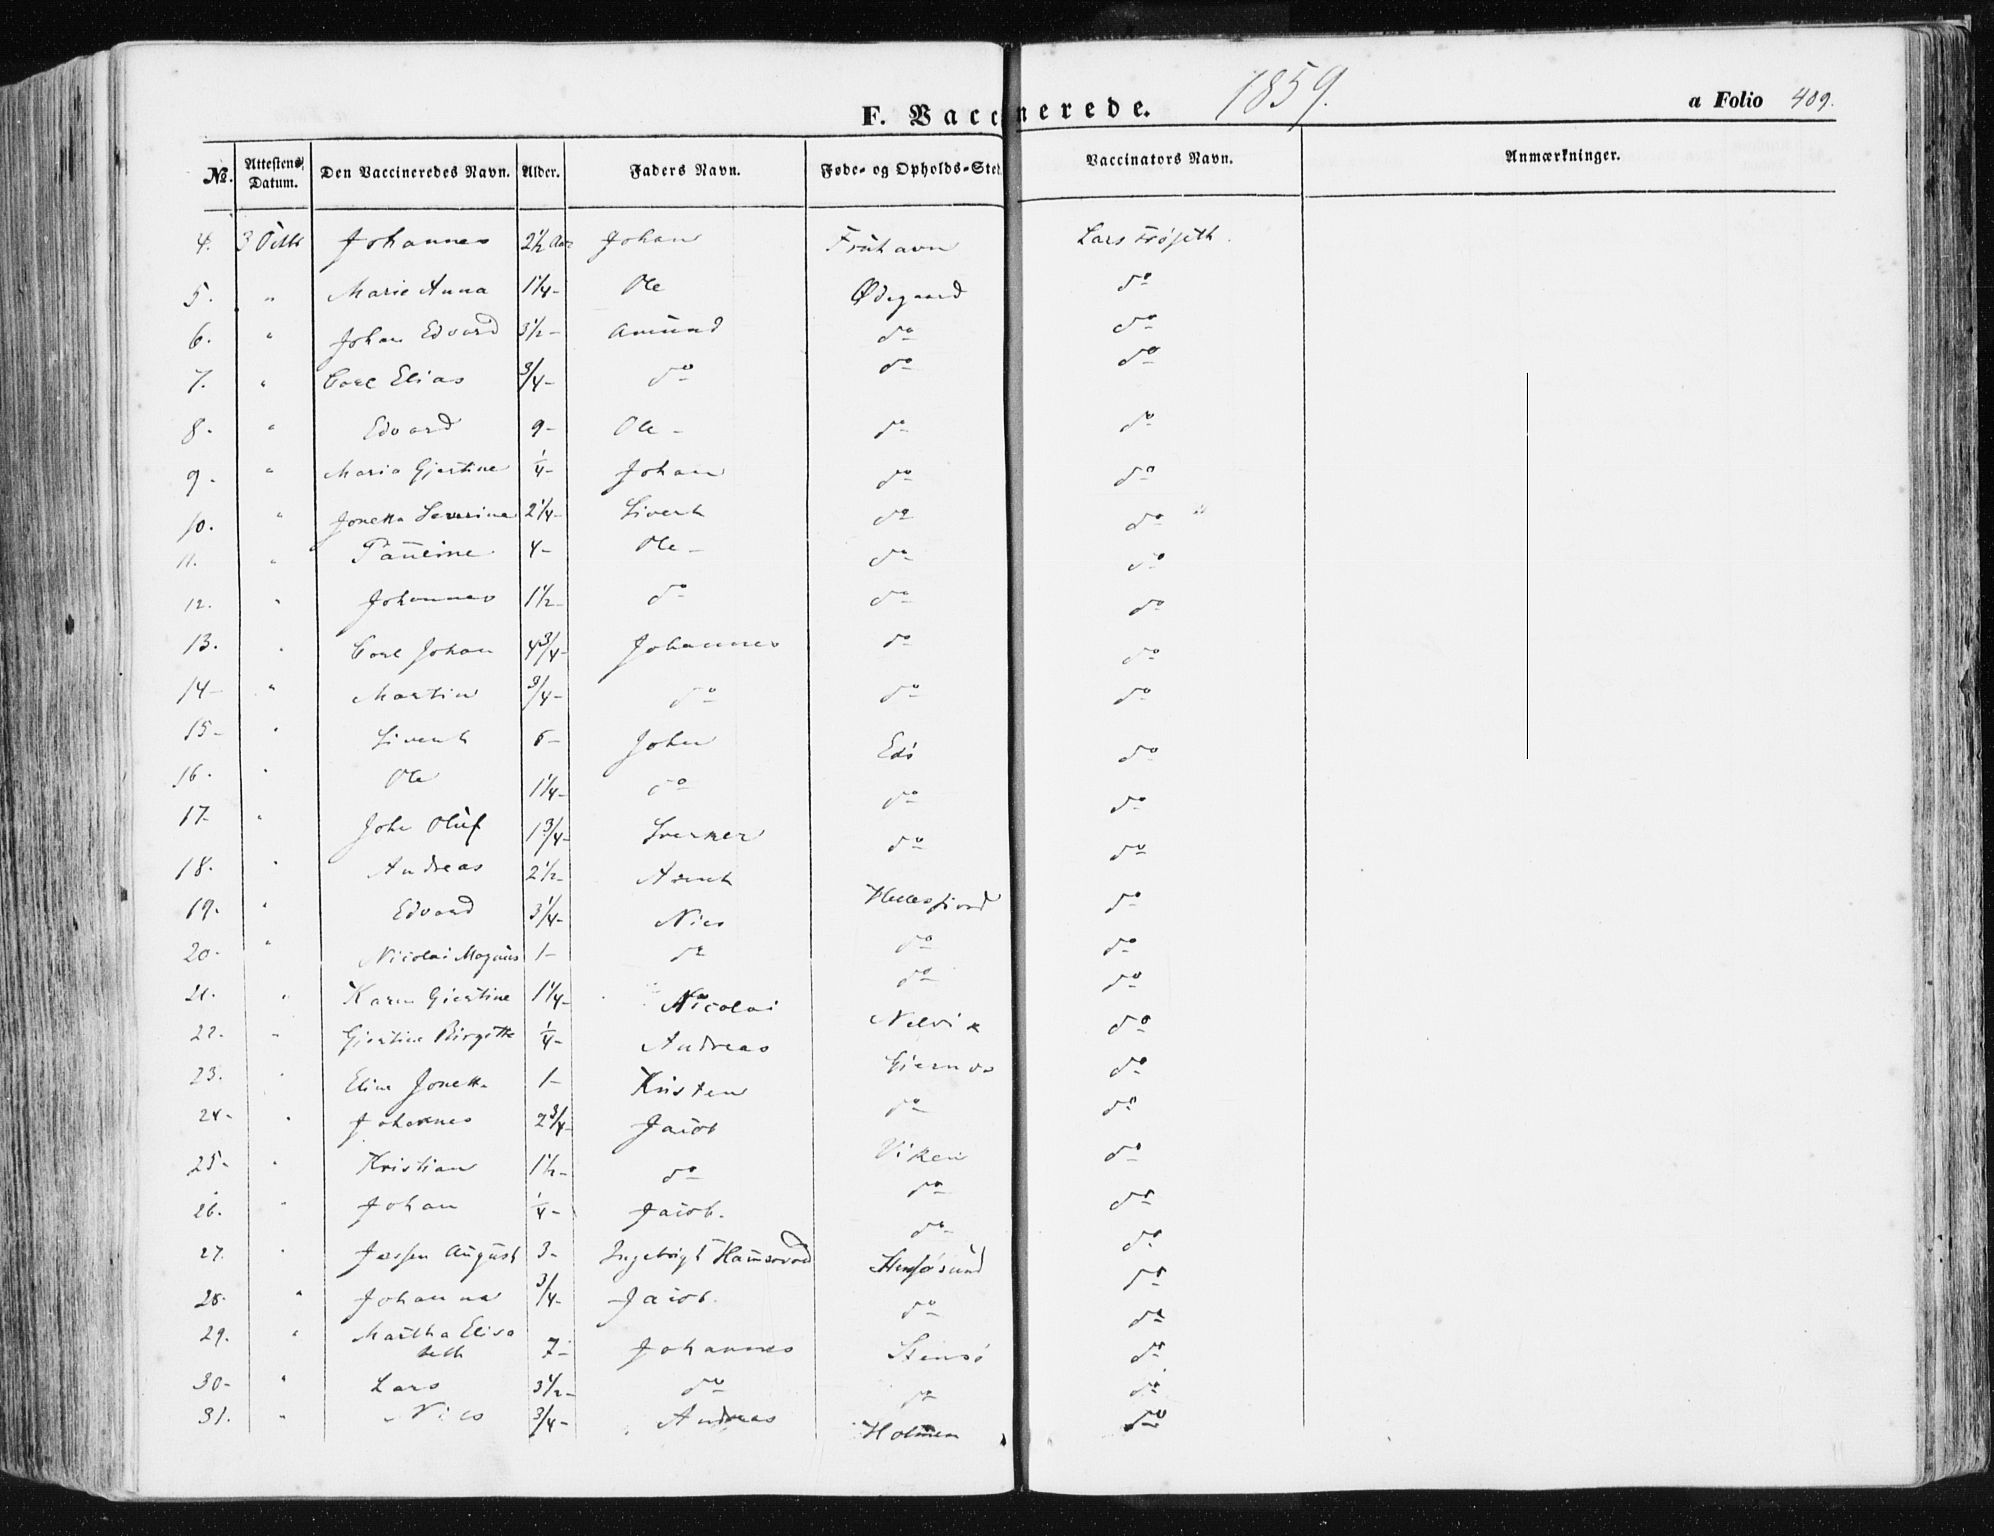 F. Vaccinerede. 1859. a Folio 409.
No. Attestens Datum. Den Vaccineredes Navn. Alder. Faders Navn. Føde- og Opholds-Sted. Vaccinators Navn. Anmærkninger.
4. 3 Johannes 2 1/2 Aar Johan Lars
5. " Marie Anna 1 1/4 - Ole Ødegaard do
6. " Johan Edvard 3 1/2 - Amund do do
7. " Carl Elias 3/4 - do do do
8. " Edvard 9 - Ole - do do
9. " Maria Gjertine 1/4 - Johan do do
10. " Jonetta Severine 2 1/4 - Sivert do do
11. " Pauline 4 - Ole - do do
12. " Johannes 1 1/2 - do do do
13. " Carl Johan 4 3/4 - Johannes do do
14 - " Martin 3/4 - do do do
15 - " Sivert 6 - John Edø do
16. " Ole 1 1/4 - do do do
17. " John Oluf 1 3/4 - Sverker do do
18. " Andreas 2 1/2 - Arent do
19. " Edvard 3 1/4 - Nils Hellesfjord do
20. " Nicolai Magnus 1 - do do do
21. " Karen Gjertine 1 1/4 - Nicolai do do
22. " Gjertine Birgitte 1/4 - Andreas Nelvik do
23. " Eline Jonetta 1 - Kristen do
24 - " Johannes 2 3/4 - Jacob do do
25 - " Kristian 1 1/2 - do Viken do
26. " Johan 1/4 - Jacob. do do
27. " August 3 - Ingebrigt do do
28. " Johanna 3/4 - Jacob. do
29. " Martha Elisa
beth 7 - Johannes Stensø do
30 - " Lars 3 1/2 - do do do
31. " Nils 3/4 - Andreas Holmen do